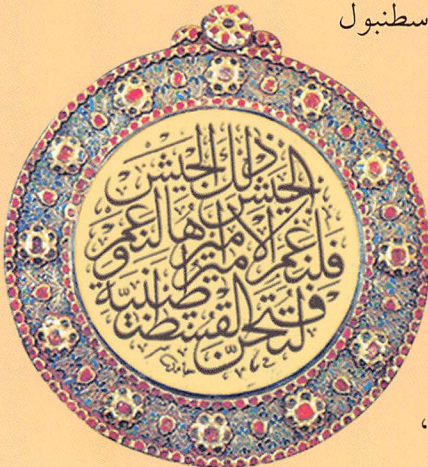 سطنبول
لَتُفتحنّ القسطنطينية
فلنعم الامير اميرها ولنعم
الجيش ذلك الجيش
حامد
،